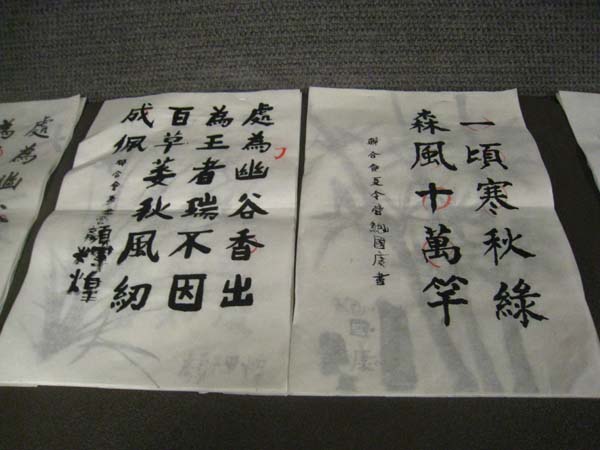 一頃寒秋綠
森風十萬竿
聯合會夏令營國慶書
處為幽谷香出
為王者瑞不因
百草萎秋風紉
成佩
聯合會夏令
處為幽谷
為